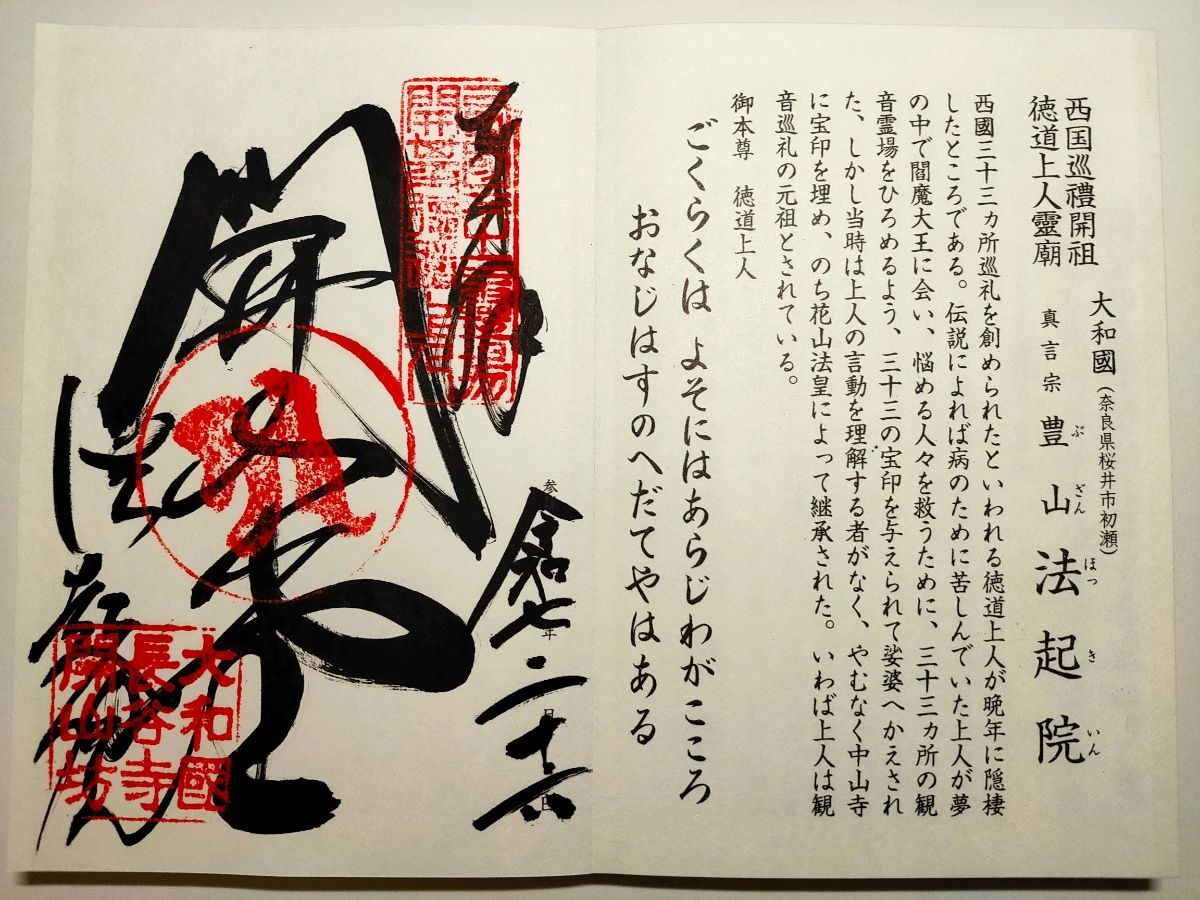 西国巡禮開祖
徳道上人靈廟
大和國（奈良県桜井市初瀬）
真言宗 豊山法起院
ぶざんほっきいん
西國三十三ヵ所巡礼を創められたといわれる徳道上人が晩年に隠棲
したところである。伝説によれば病のために苦しんでいた上人が夢
の中で閻魔大王に会い、悩める人々を救うために、三十三ヵ所の観
音霊場をひろめるよう、三十三の宝印を与えられて娑婆へかえされ
た、しかし当時は上人の言動を理解する者がなく、やむなく中山寺
に宝印を埋め、のち花山法皇によって継承された。いわば上人は観
音巡礼の元祖とされている。
御本尊 徳道上人
ごくらくは よそにはあらじわがこころ
おなじはすのへだてやはある
令和七年二月十六日
開山堂
法起院
大和國
長谷寺
開山坊